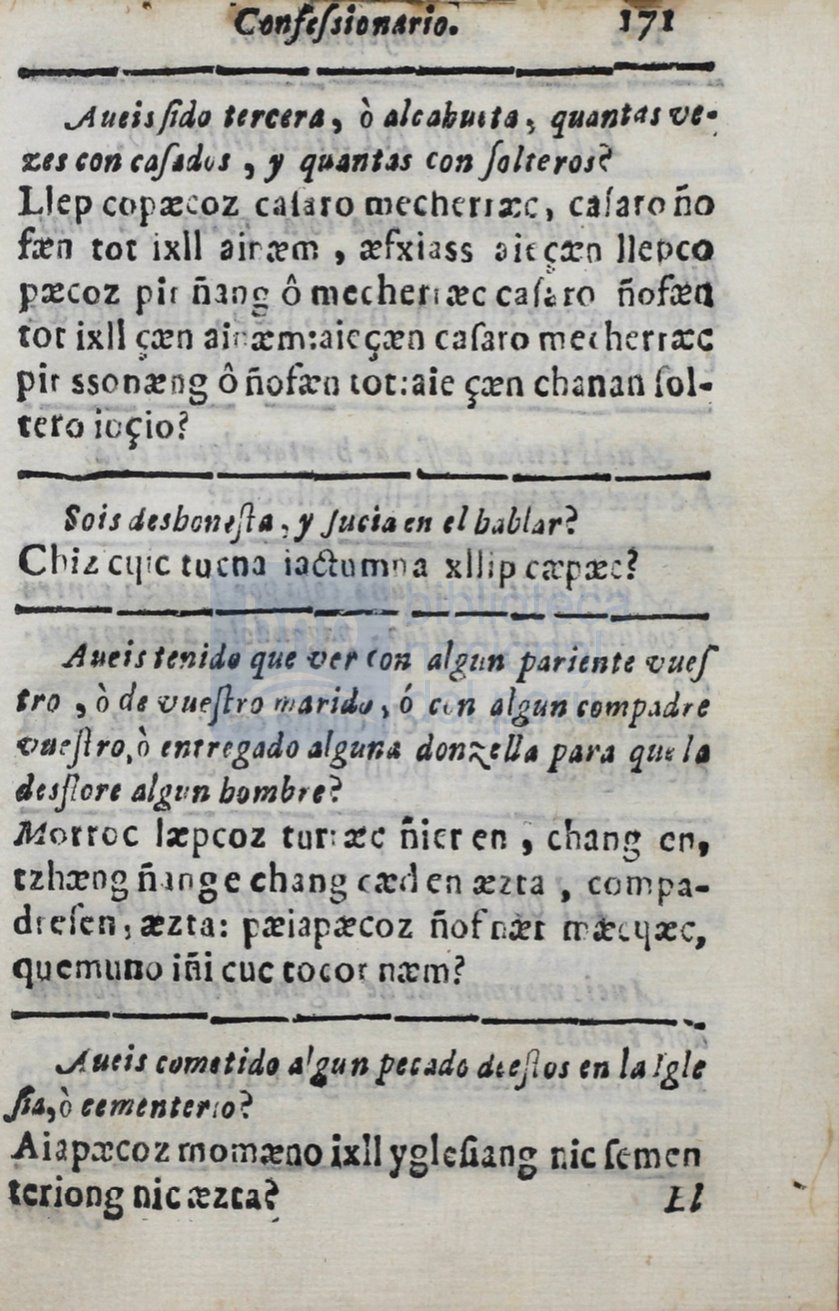 Confeſsionario. 171
Aueis ſido tercera, ò alcahueta, quantas ve-
zes con caſados, y quantas con ſolteros?
Llep copæcoz caſaro mecherræc, caſaro ño
fæn tot ixll ainæm, æfxiass aie çæn llepco
pæcoz pir ñang ô mecherræc caſaro ñofæn
tot ixll çæn ainæm: aie çæn caſaro mecherræc
pir ssonæng ô ñofæn tot: aie çæn chanan ſol-
tero ioçio?
Sois desboneſta, y ſucia en el hablar?
Chiz cqic tucna iactumna xllip cæpæc?
Aueis tenido que ver con algun pariente vueſ
tro, ò de vueſtro marido, ó con algun compadre
vueſtro, ò entregado alguna donzella para que la
desflore algun hombre?
Morroc læpcoz turræc ñier en, chang en,
tzhæng ñange chang cæd en æzta, compa-
dreſen, æzta: pæiapæcoz ñofnær mæcqæc,
quemuno iñi cuc tocot næm?
Aueis cometido algun pecado deſtos en la Igle
ſia, ò cementerio?
Aiapæcoz momæno ixll ygleſiang nic ſemen
teriong nic æzta?
El